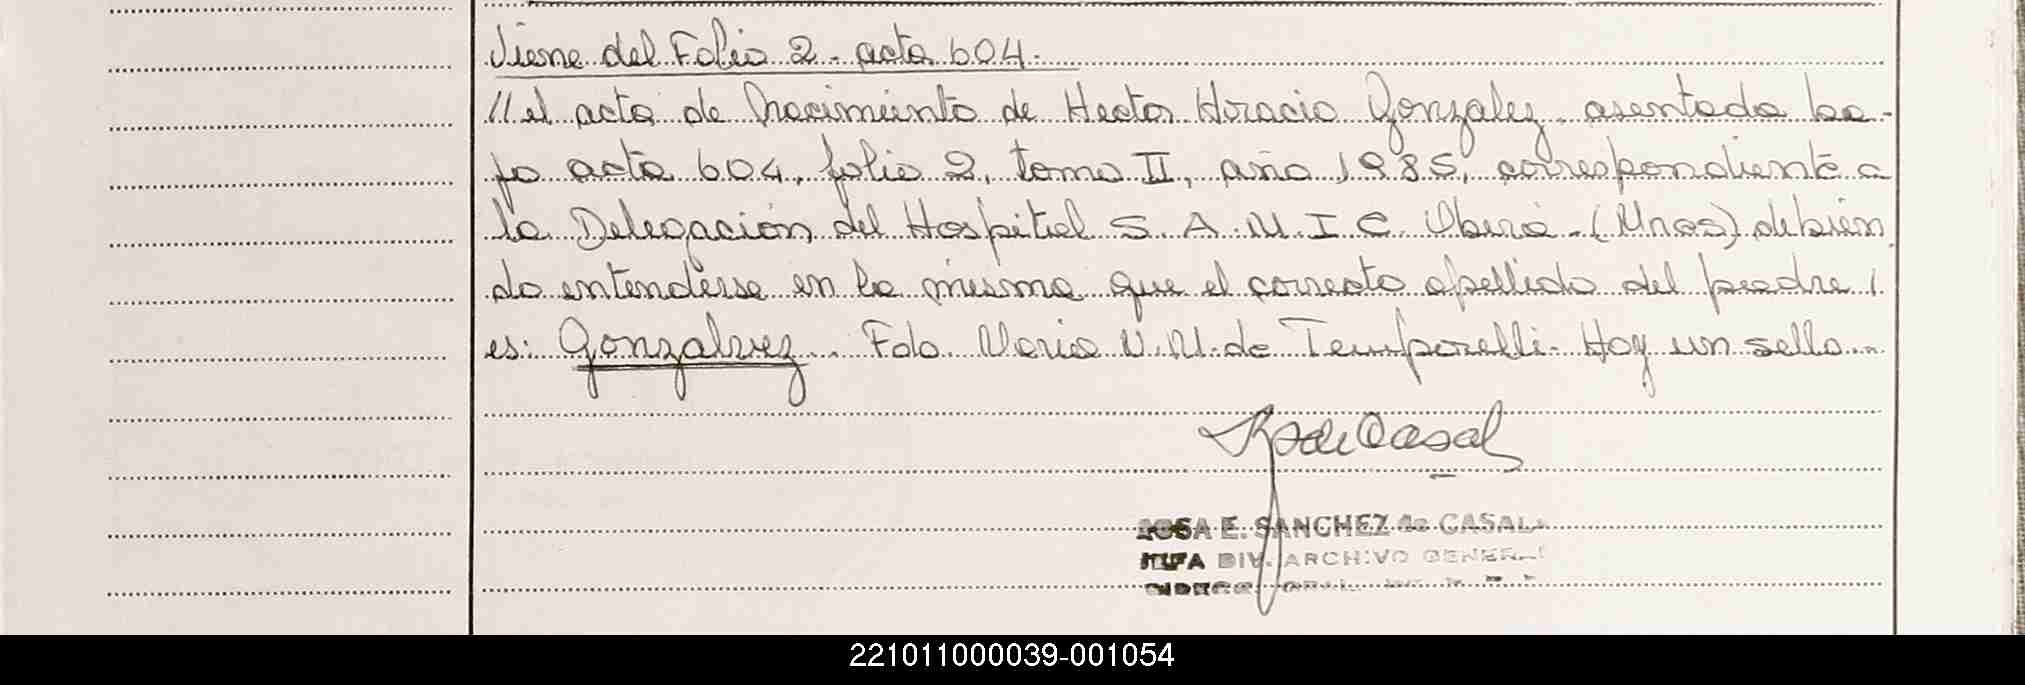 Viene del Folio 2 - acta 604.
// el acta de Nacimiento de Hector Horacio Gonzalez, asentada ba-
jo acta 604, folio 2, tomo II, año 1985, correspondiente a
la Delegación del Hospital S. A. M. I. C. Oberá - (Mnes) debién
do entenderse en la misma que el correcto apellido del padre
es: Gonzalvez. Fdo. Maria V. M. de Temporelli - Hay un sello
R S de Casal
ROSA E. SANCHEZ de CASAL
JEFA DIV. ARCHIVO GENERAL
221011000039-001054